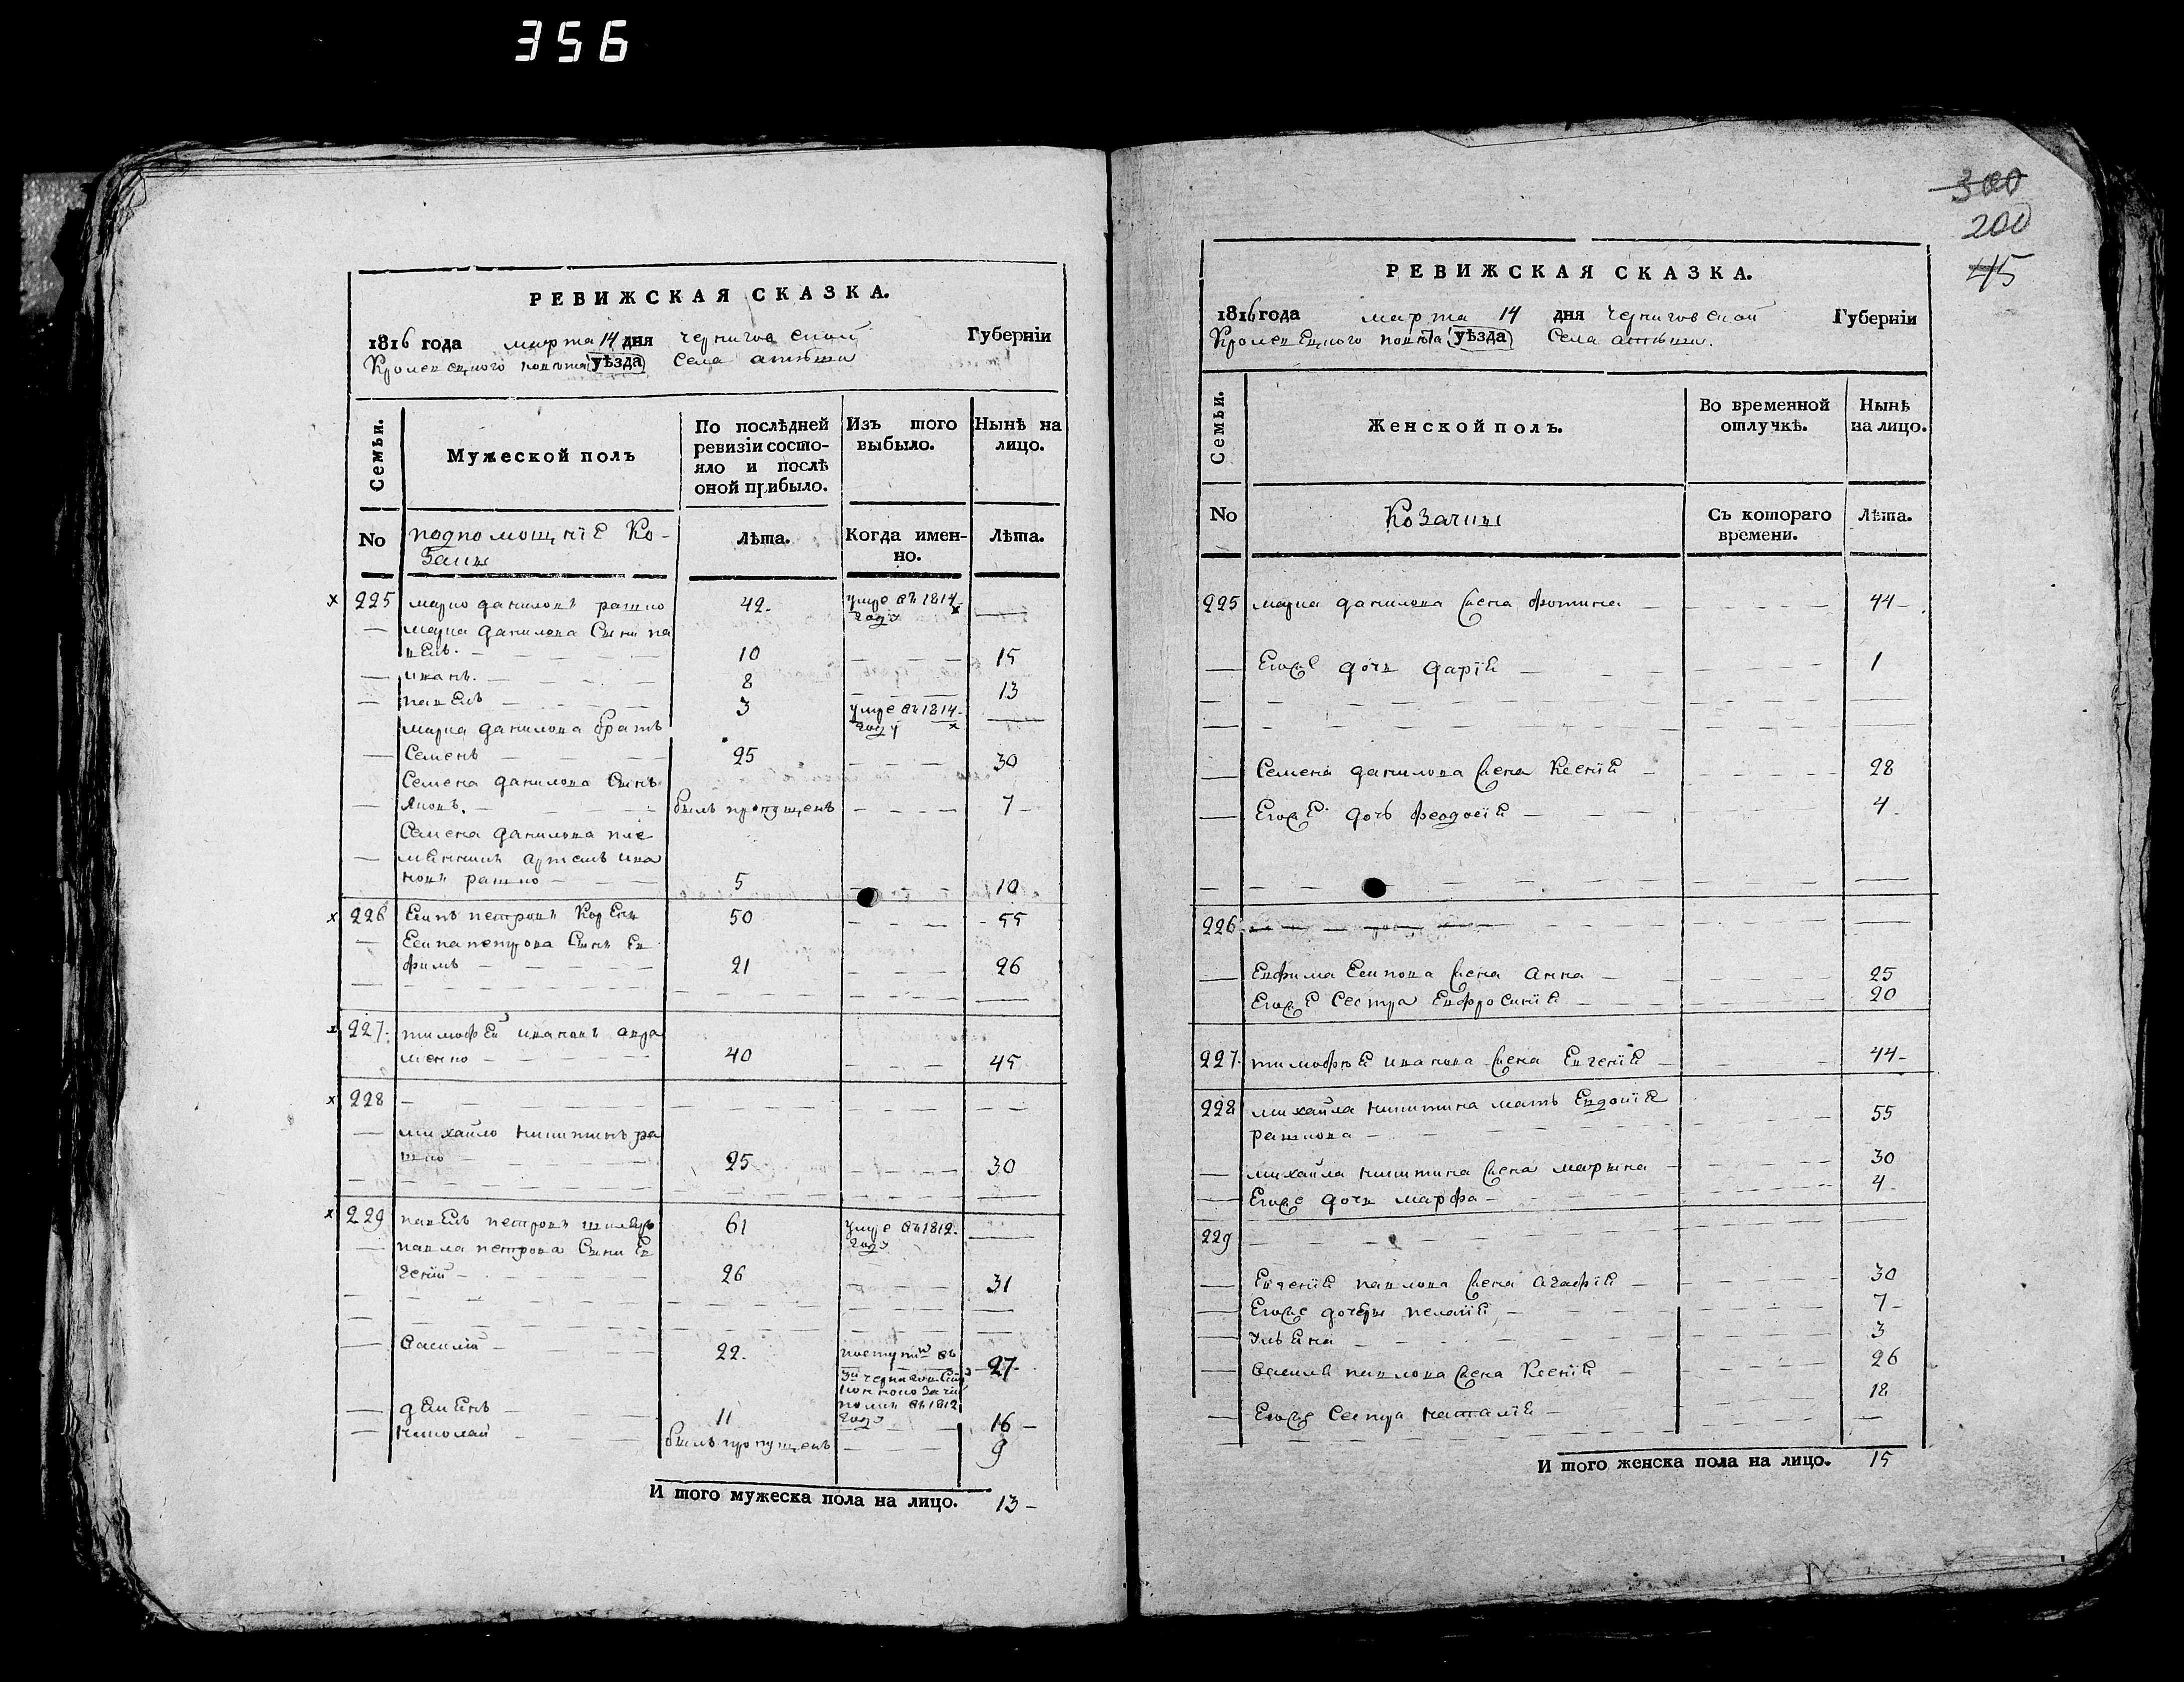 356
РЕВИЖСКАЯ СКАЗКА.
1816 года марта 14 дня Черниговской Губерніи
Кролевецкого повѣта уѣзда Села атюши
Семьи.
Мужеской полъ
По послѣдней ревизіи состо-
яло и послѣ
оной прибыло.
Изъ того
выбыло.
Нынѣ на
лицо.
No
подпомощнiе Ко-
заки
Лѣта.
Когда имен-
но.
Лѣта.
х 225 марко даниловъ рашко 42. умре въ 1814
году
марка данилова Сыни па
велъ. 10 15
иванъ. 8 13
павелъ 3 умре въ 1814
году
марка данилова братъ
Семенъ 25 30
Семена данилова Сынъ
Яковъ. былъ пропущенъ 7
Семена данилова пле
менникъ артемъ ива
новъ рашко 5 10
х 226 Есипъ петровъ 50 55
Есипа петрова Сынъ Ев
фимъ 21 26
х 227. тимофей ивановъ авра
менко 40 45
х 228
михайло никитинъ ра
шко 25 30
х 229 павелъ петровъ 61 умре въ 1812.
году
павла петрова Сыни Ев
гений 26 31
василій 22. поступи въ 27
полкъ въ 1812
году
11 16
николай былъ пропущенъ 9
И того мужеска пола на лицо. 13
300
200
45
РЕВИЖСКАЯ СКАЗКА.
1816 года марта 14 дня Черниговской Губерніи
Кролевецкого повѣта уѣзда Села атюши.
Семьи.
Женской полъ.
Во временной
отлучкѣ.
Нынѣ
на лицо.
No
Козачки
Съ котораго
времени.
Лѣта.
225 марка данилова жена фотина 44
Егоже дочь дарiя 1
Семена данилова жена Ксенiя 28
Егоже дочь феодосiя 4
226
Евфима Есипова жена анна 25
Егоже Сестра Евфросинiя 20
227. тимофея иванова жена Евгенiя 44
228 михайла никитина мать Евдокiя
рашкова 55
михайла никитина жена марина 30
Егоже дочь марфа 4
229
Евгенiя павлова жена агафiя 30
Егоже дочери пелагiя 7
3
василя павлова жена Ксенiя 26
Егоже Сестра наталiя 18
И того женска пола на лицо. 15